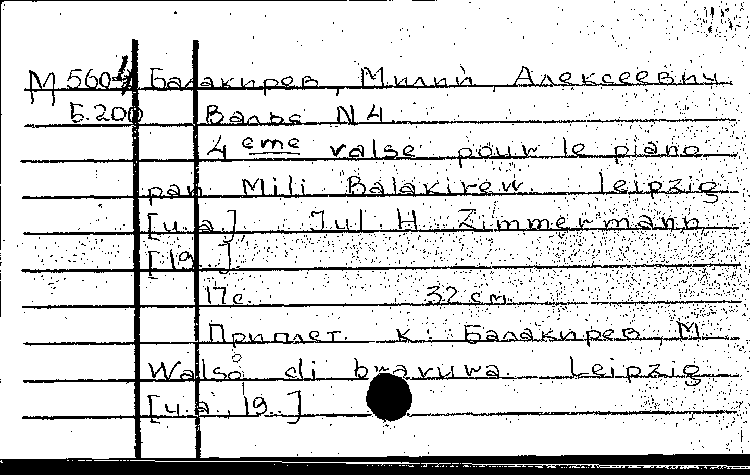 М 560 Балакирев, Милий Алексеевич
Б.200 Вальс N 4.
4 ème valse pour le piano
par Mili Balakirew. Leipzig
[u. a.] Jul. H. Zimmermann
[19..]
17 с. 32 см.
Приплет. к: Балакирев, М.
Walso di bravura. Leipzig
[u. a., 19..]